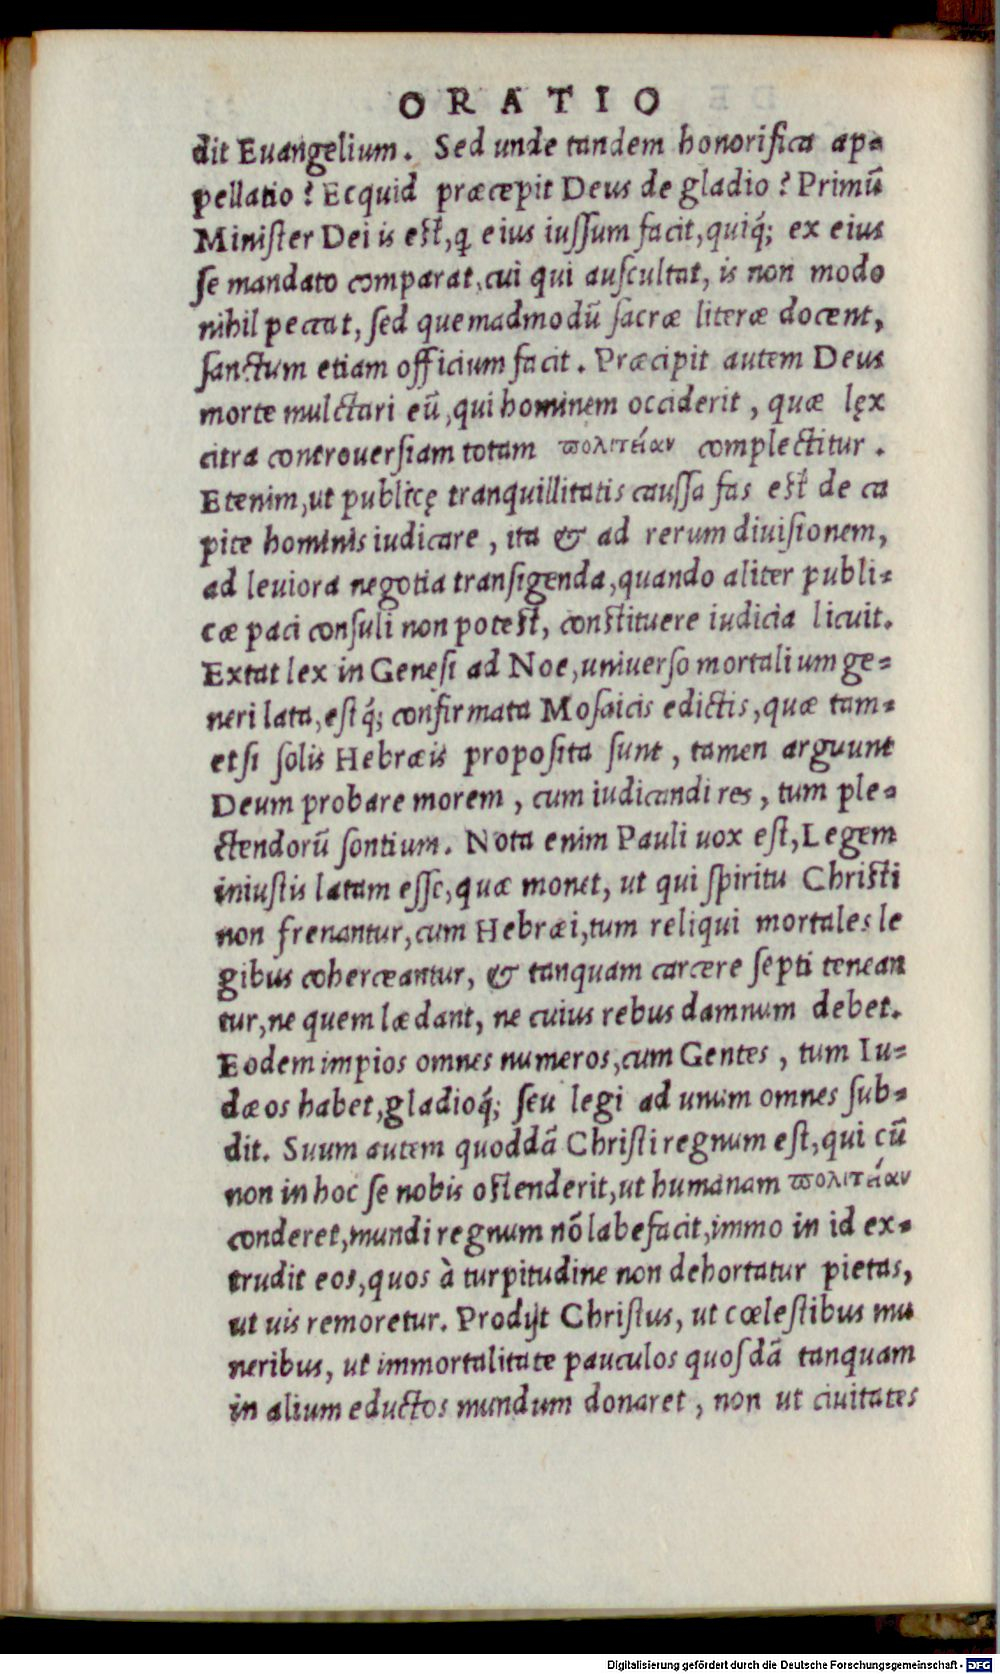 ORATIO
dit Euangelium. Sed unde tandem honorifica ap-
pellatio? Ecquid præcepit Deus de gladio? Primũ
Miniſter Dei is eſt, ꝗ eius iuſſum facit, quiq́; ex eius
ſe mandato comparat, cui qui auſcultat, is non modo
nihil peccat, ſed quemadmodũ ſacræ literæ docent,
ſanctum etiam officium facit. Præcipit autem Deus
morte mulctari eũ, qui hominem occiderit, quæ lęx
citra controuerſiam totam πολιτείαν complectitur.
Etenim, ut publicę tranquillitatis cauſſa fas eſt de ca
pite hominis iudicare, ita & ad rerum diuiſionem,
ad leuiora negotia tranſigenda, quando aliter publi-
cæ paci conſuli non poteſt, conſtituere iudicia licuit.
Extat lex in Geneſi ad Noe, uniuerſo mortalium ge-
neri lata, eſtq́; confirmata Moſaicis edictis, quæ tam-
etſi ſolis Hebræis propoſita ſunt, tamen arguunt
Deum probare morem, cum iudicandi res, tum ple-
ctendorũ ſontium. Nota enim Pauli uox eſt, Legem
iniuſtis latam eſſe, quæ monet, ut qui ſpiritu Chriſti
non frenantur, cum Hebræi, tum reliqui mortales le
gibus coherceantur, & tanquam carcere ſepti tenean
tur, ne quem lædant, ne cuius rebus damnum debet.
Eodem impios omnes numeros, cum Gentes, tum Iu-
dæos habet, gladioq́; ſeu legi ad unum omnes ſub-
dit. Suum autem quoddã Chriſti regnum eſt, qui cũ
non in hoc ſe nobis oſtenderit, ut humanam πολιτείαν
conderet, mundi regnum nõ labefacit, immo in id ex-
trudit eos, quos à turpitudine non dehortatur pietas,
ut uis remoretur. Prodijt Chriſtus, ut cœleſtibus mu
neribus, ut immortalitate pauculos quoſdã tanquam
in alium eductos mundum donaret, non ut ciuitates
Digitalisierung gefördert durch die Deutsche Forschungsgemeinschaft - DFG